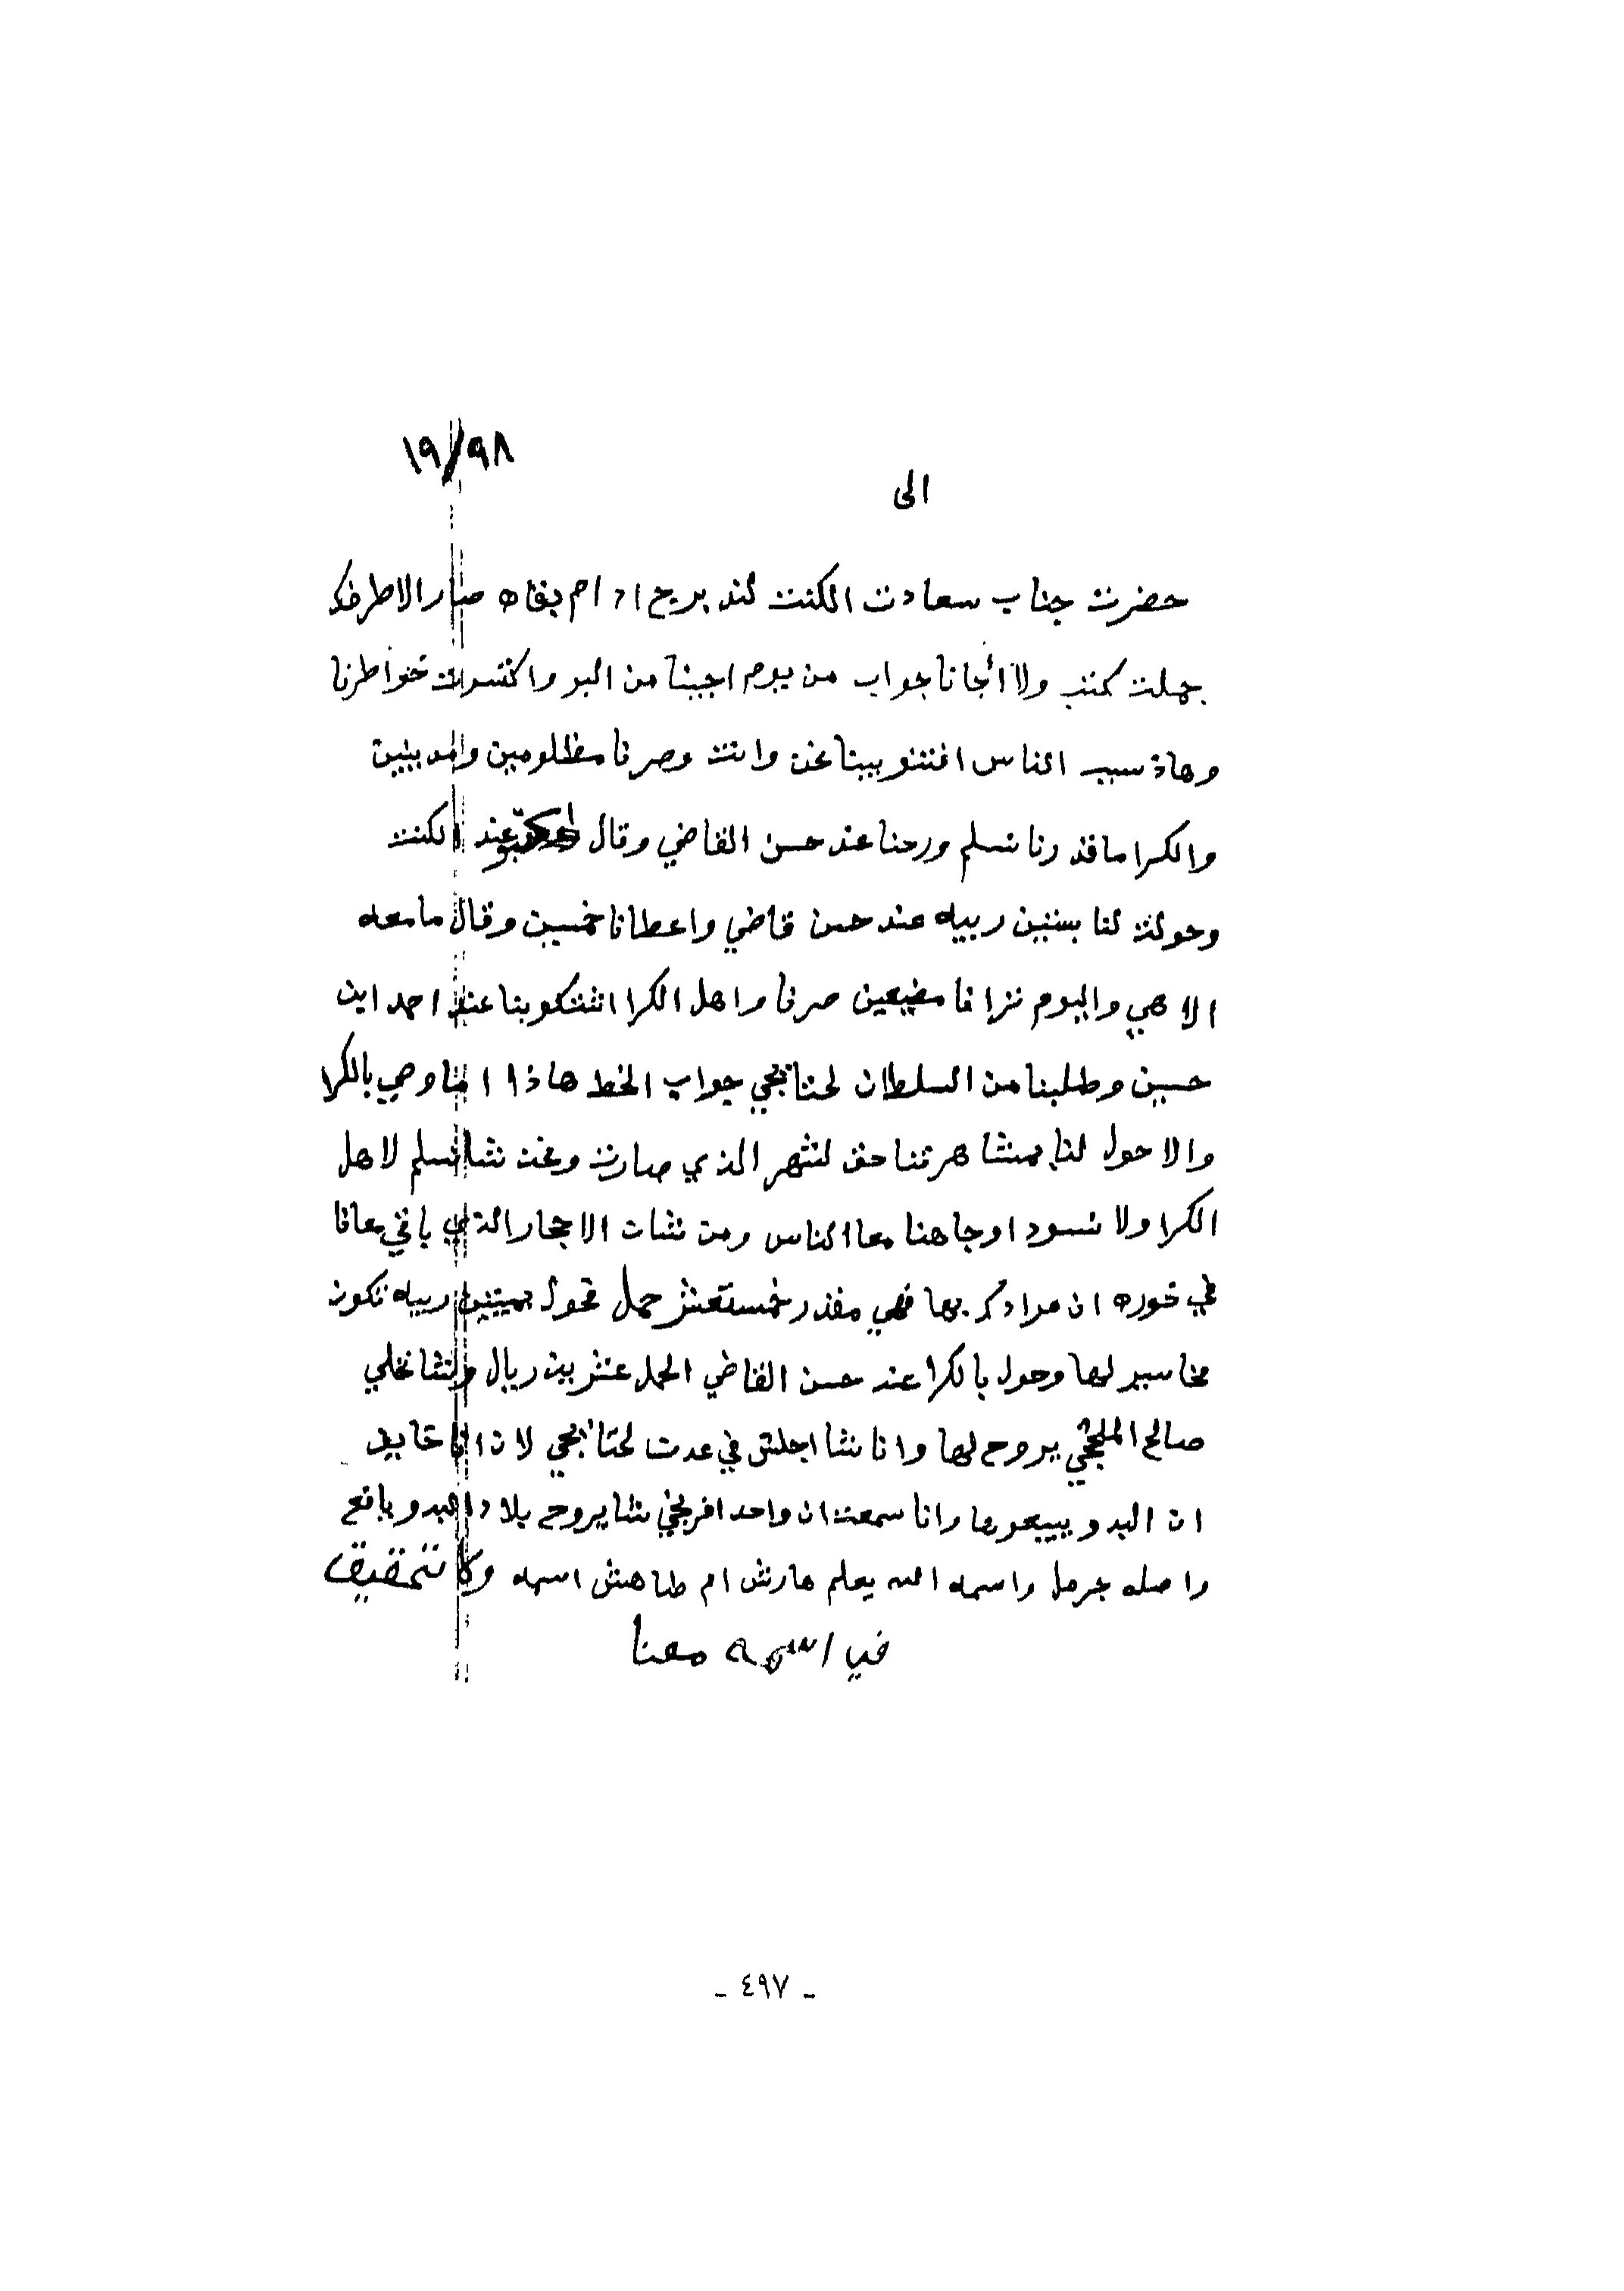 ١٩/٩٨
الى
حضرت جناب سعادت الكنت لندبريح ادام بقاه صار الاطرفكم
جملت كتب ولا اتجانا جواب من يوم اجينا من البر واكتسرت خواطرنا
وهاذ سبب الناس افتنو بيننا نحن وانت وصرنا مظلومين وامديينين
والكرا ما قدرنا نسلم ورحنا عند حسن القاضي وقال عند الكنت
وحولت لنا بستين ربيه عند حسن قاضي واعطانا خمسين وقال ما معه
الا هي واليوم ترانا مضيعين صرنا واهل الكرا اشتكو بنا عند احمد ابن
حسين وطلبنا من السلطان لحتا يجي جواب الخط هاذا اما وصي بالكرا
والا حول لنا بمشاهرتنا حق لشهر الذي صارت ونحن نشا نسلم لاهل
الكرا ولا نسود اوجاهنا معا الناس ومن شات الاحجار الذي باقي معانا
في خوره ان مرادكم بها فهي مقدر خمستعشر حمل تحول بميتين ربيه تكون
مخاسير لها وحول بالكرا عند حسن القاضي الحمل عشرين ريال ونشا نخلي
صالح الملحجي يروح لها وانا نشا اجلس في عدن لحتا يجي لان انا خايف
ان البدو يبيعوها وانا سمعت ان واحد افرنجي نشا يروح بلاد البدو يافع
واصله جرمل واسمه الله يعلم هارش ام طاهش اسمه وكا نتحقيق
في اسمه معنا
- ٤٩٧ -